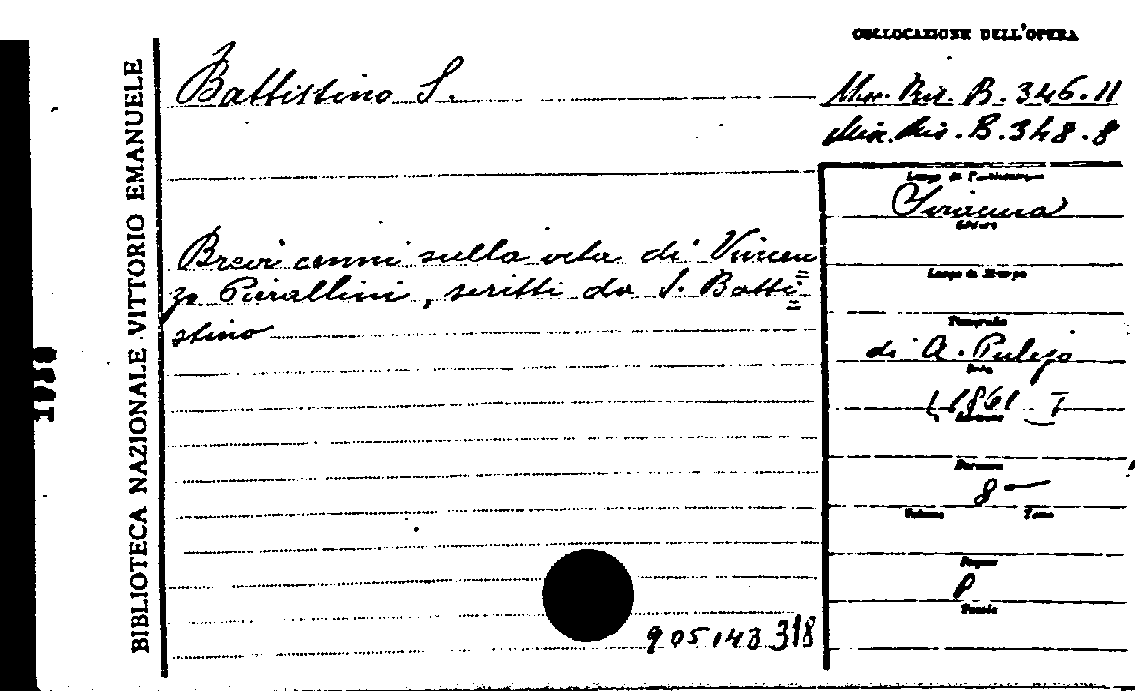 COLLOCAZIONE DELL'OPERA
Battistino S.
Misc. Ris. B. 346.11
Misc. Ris. B. 348.8
BIBLIOTECA NAZIONALE VITTORIO EMANUELE
Luogo di Pubblicazione
Siracusa
Editore
Brevi cenni sulla vita di Vincen
zo Pirallini, scritti da S. Batti
stino
Luogo di Stampa
Tipografia
di A. Pulejo
Data
[1861]
Formato
8
Volume Tomo
Pagine
P
905143 318